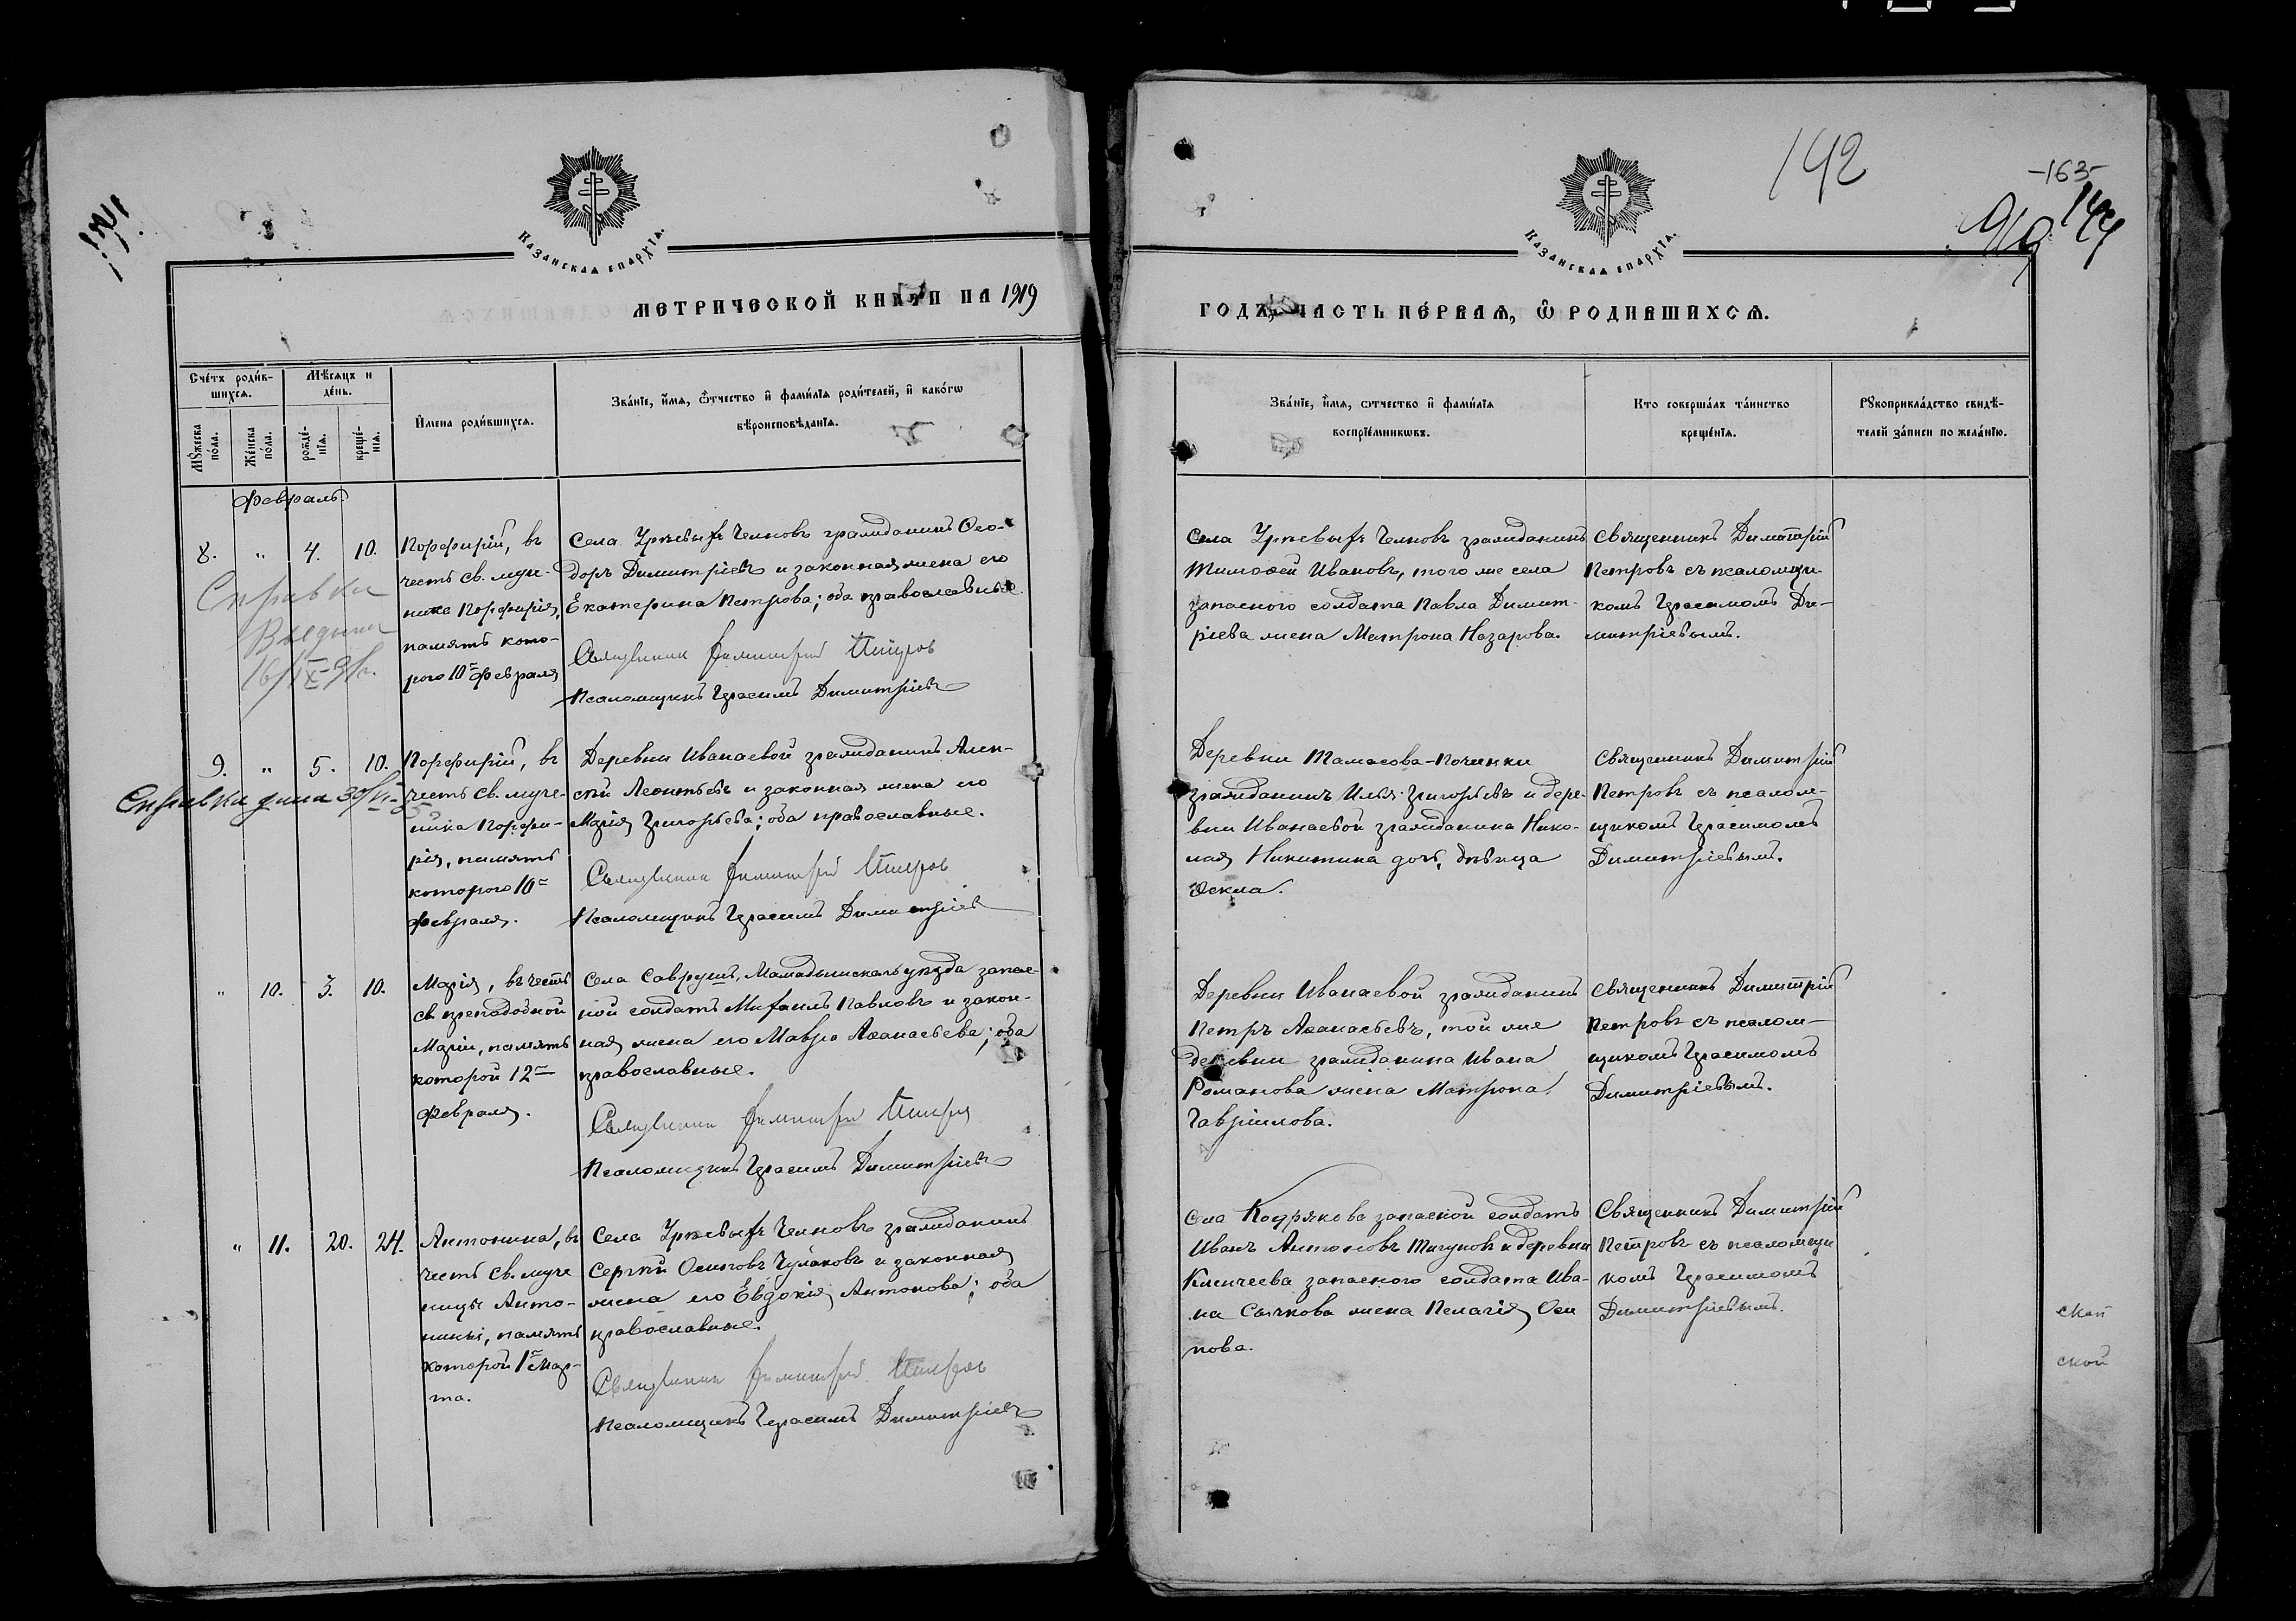 КАЗАНСКАЯ ЕПАРХІЯ.
МЕТРИЧЕСКОЙ КНИГИ НА 1919
Сче́тъ роди́в-
шихся.
Мѣсяцъ и
де́нь.
Му́жеска по́ла.
Же́нска по́ла.
рожде́-
нія.
креще́-
нія.
И҆мена роди́вшихся.
Зва́нїе, и҆́мя, ѻ҆́тчество и҆ фами́лїя роди́телей, и҆ како́гѡ
вѣроисповѣ́данїя.
Февраль.
8. " 4. 10.
Порфирій, въ
честь св. муче-
ника Порфирія,
память кото-
рого 10го Февраля
Справка
Выдана
16/IX
Села Урѣевыхъ Челновъ гражданинъ Ѳео-
доръ Димитріевъ и законная жена его
Екатерина Петрова; оба православные.
Священник Димитрий Петров
Псаломщикъ Герасимъ Димитріевъ
9. " 5. 10.
Справка дана 30/VI-55
Порфирій, въ
честь св. муче-
ника Порфи-
рія, память
которого 10го
Февраля.
Деревни Иванаевой гражданинъ Алек-
сѣй Леонтьевъ и законная жена его
Марія Григорьева; оба православные.
Священник Димитрий Петров
Псаломщикъ Герасимъ Димитріев
" 10. 3. 10.
Марія, въ честь
св. преподобной
Маріи, память
которой 12го
Февраля.
Села Саврушъ, Мамадышскаго уѣзда запас-
ной солдатъ Михаилъ Павловъ и закон-
ная жена его Мавра Аѳанасьева; оба
православные.
Священник Димитрий Петров
Псаломщикъ Герасимъ Димитріевъ
" 11. 20. 24.
Антонина, въ
честь св. муче
ницы Анто-
нины, память
которой 1го Мар-
та.
Села Урѣевыхъ Челновъ гражданинъ
Сергѣй Осиповъ Чулаковъ и законная
жена его Евдокія Антонова; оба
православные.
Священник Димитрий Петров
Псаломщикъ Герасимъ Димитріевъ
142
-163-
144
КАЗАНСКАЯ ЕПАРХІЯ.
ГОДЪ, ЧАСТЬ ПЕ́РВАЯ, Ѡ҆ РОДИВШИХСЯ.
Зва́нїе, и҆́мя, ѻтчество и҆ фами́лїя
воспрїе́мникѡвъ.
Кто соверша́лъ та́инство
креще́нїя.
Рꙋкоприкла́дство свидѣ́-
телей за́писи по жела́нїю.
Села Урѣевыхъ Челновъ гражданинъ
Тимоѳей Ивановъ, того же села
запасного солдата Павла Димит-
ріева жена Матрона Назарова.
Священникъ Димитрій
Петровъ съ псаломщи-
комъ Герасимомъ Ди-
митріевымъ.
Деревни Тамасова-Починки
гражданинъ Илья Григорьевъ и дере-
вни Иванаевой гражданина Нико-
лая Никитина дочь, дѣвица
Ѳекла.
Священникъ Димитрій
Петровъ съ псалом-
щикомъ Герасимомъ
Димитріевымъ.
Деревни Иванаевой гражданинъ
Петръ Аѳанасьевъ, той же
деревни гражданина Ивана
Романова жена Матрона
Гавріилова.
Священникъ Димитрій
Петровъ съ псалом-
щикомъ Герасимомъ
Димитріевымъ.
Села Кодрякова запасной солдатъ
Иванъ Антоновъ Тигуновъ и деревни
Клычеева запасного солдата Ива-
на Сычкова жена Пелагія Оси
пова.
Священникъ Димитрій
Петровъ съ псаломщи
комъ Герасимомъ
Димитріевымъ.
ской
ской